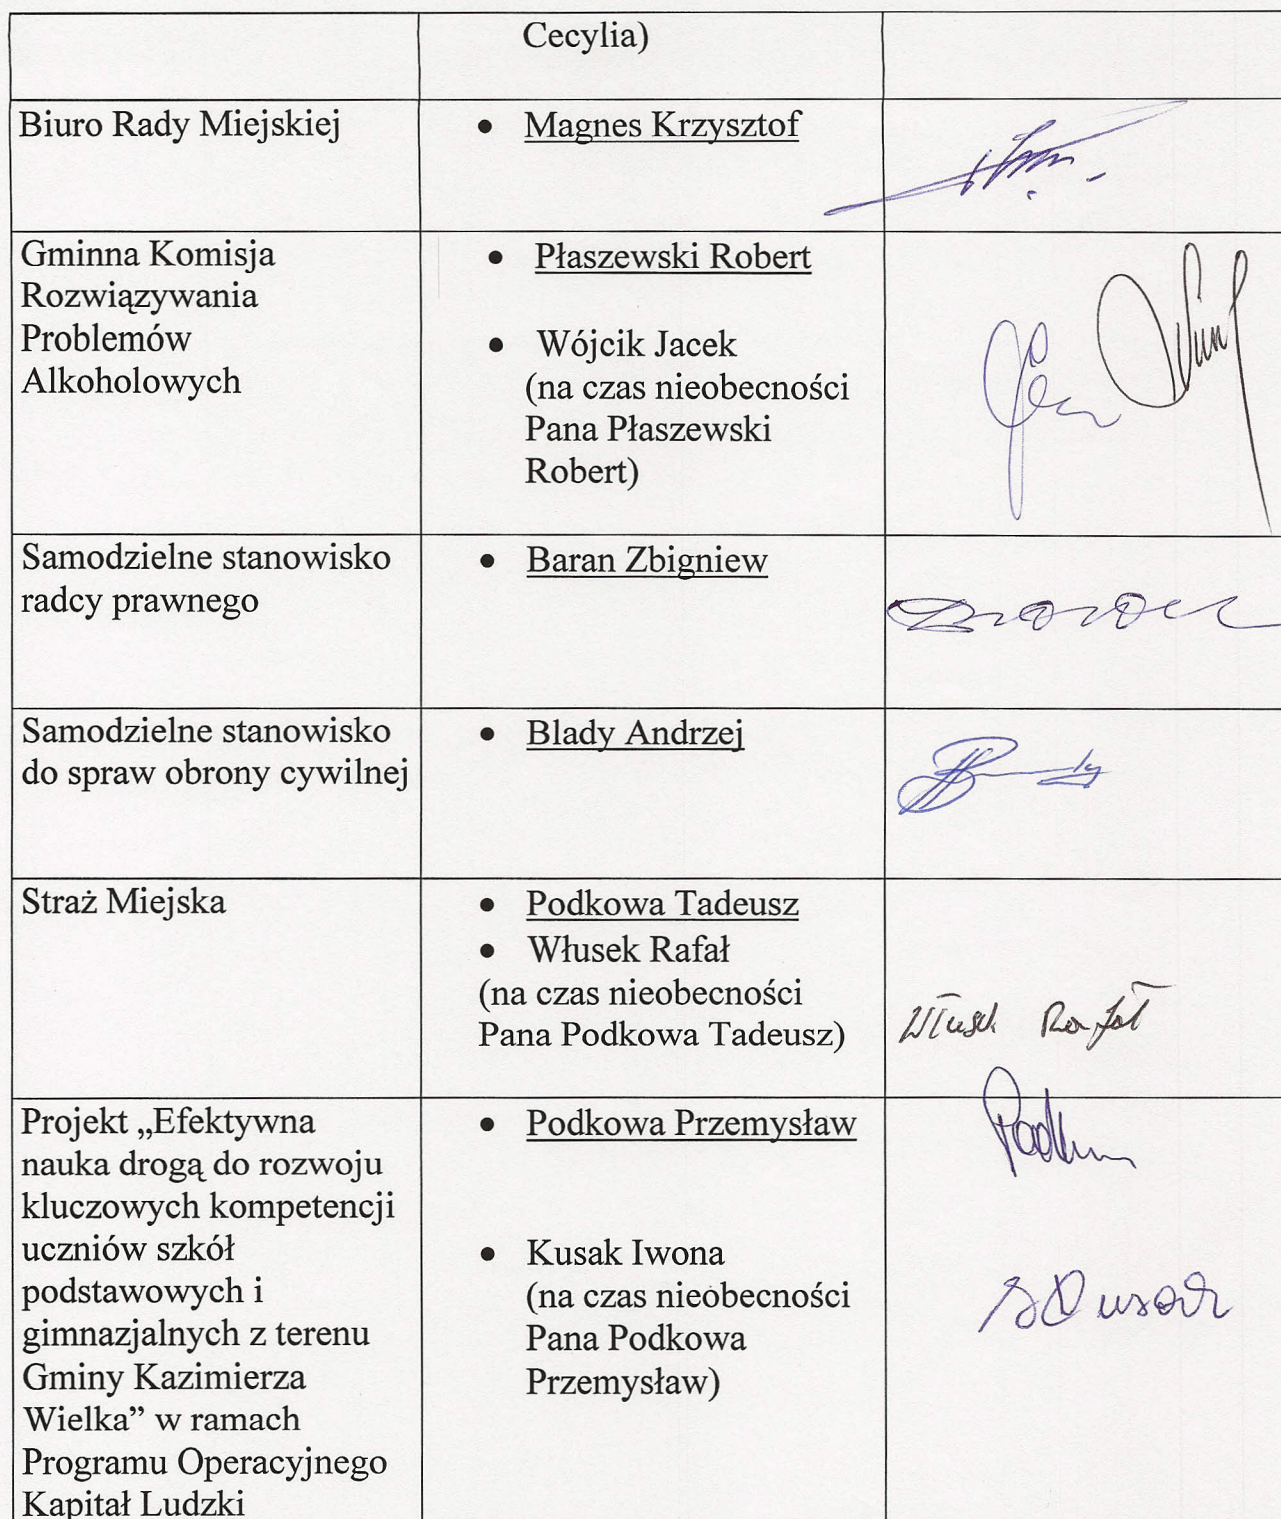 Cecylia)
Biuro Rady Miejskiej
• Magnes Krzysztof
Gminna Komisja
Rozwiązywania
Problemów
Alkoholowych
• Płaszewski Robert
• Wójcik Jacek
(na czas nieobecności
Pana Płaszewski
Robert)
Samodzielne stanowisko
radcy prawnego
• Baran Zbigniew
Samodzielne stanowisko
do spraw obrony cywilnej
• Blady Andrzej
Straż Miejska
• Podkowa Tadeusz
• Włusek Rafał
(na czas nieobecności
Pana Podkowa Tadeusz)
Włusek Rafał
Projekt „Efektywna
nauka drogą do rozwoju
kluczowych kompetencji
uczniów szkół
podstawowych i
gimnazjalnych z terenu
Gminy Kazimierza
Wielka” w ramach
Programu Operacyjnego
Kapitał Ludzki
• Podkowa Przemysław
• Kusak Iwona
(na czas nieobecności
Pana Podkowa
Przemysław)